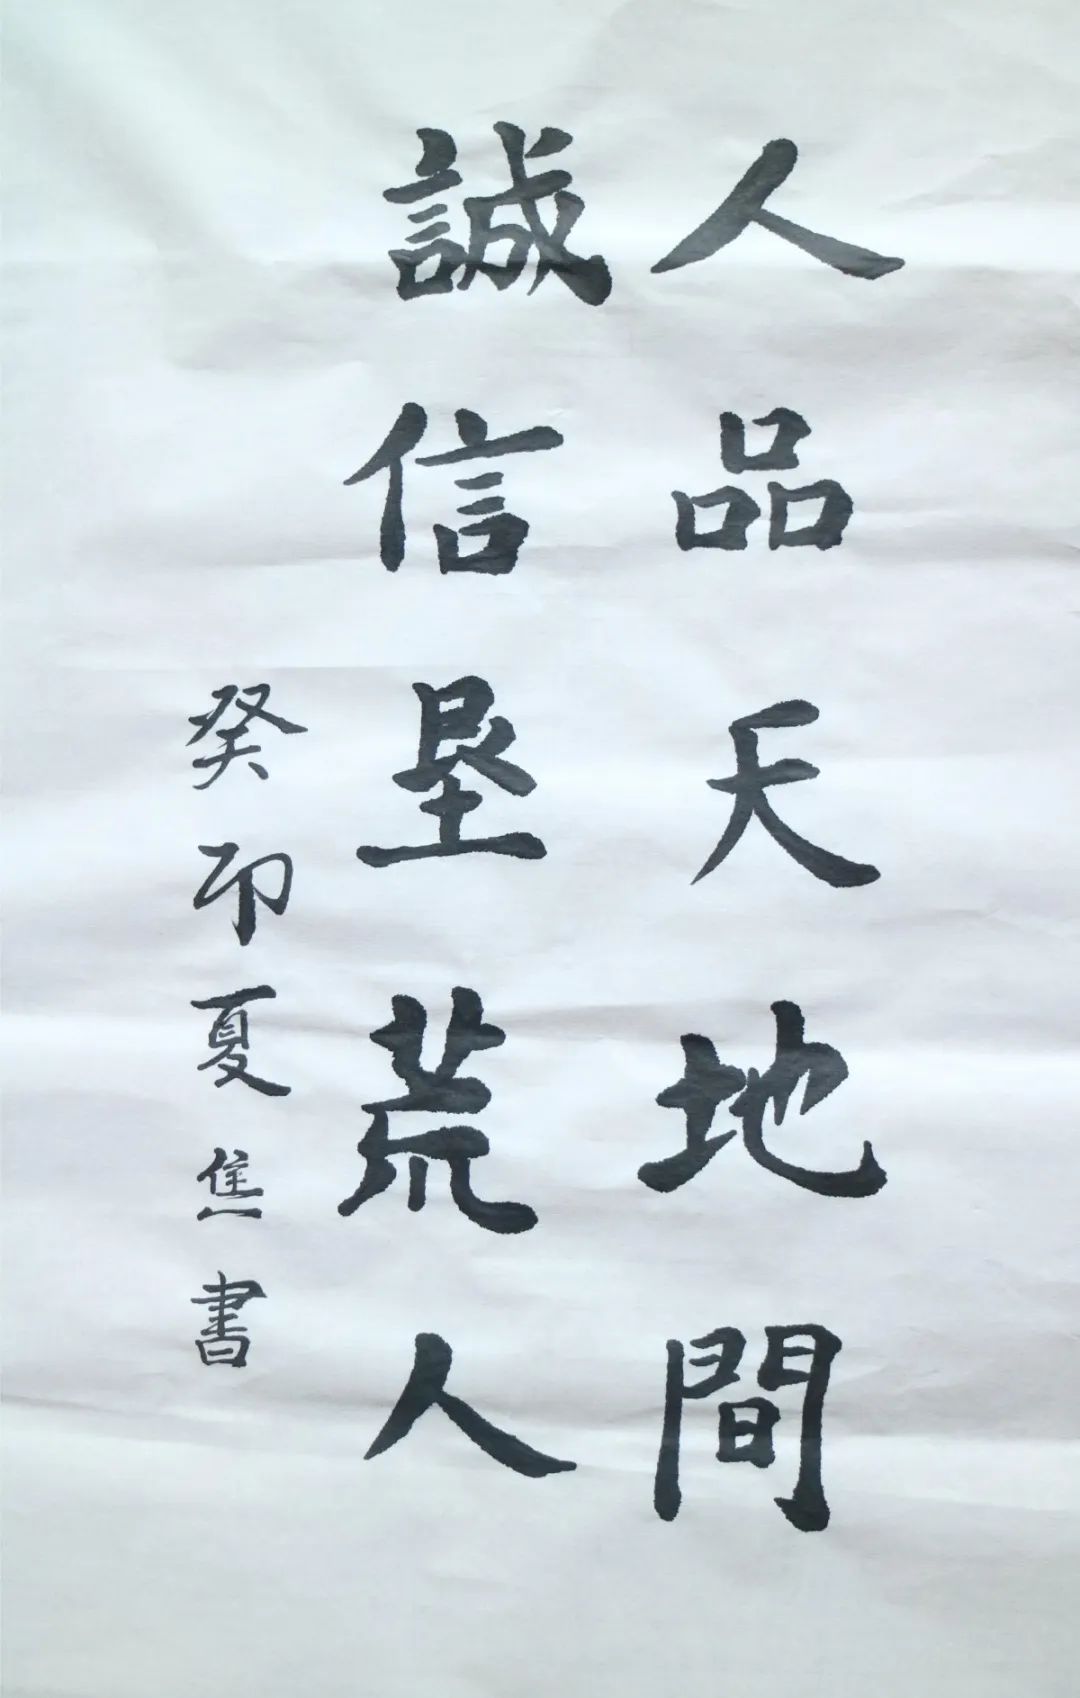 人品天地間
誠信垦荒人
癸卯夏焦書